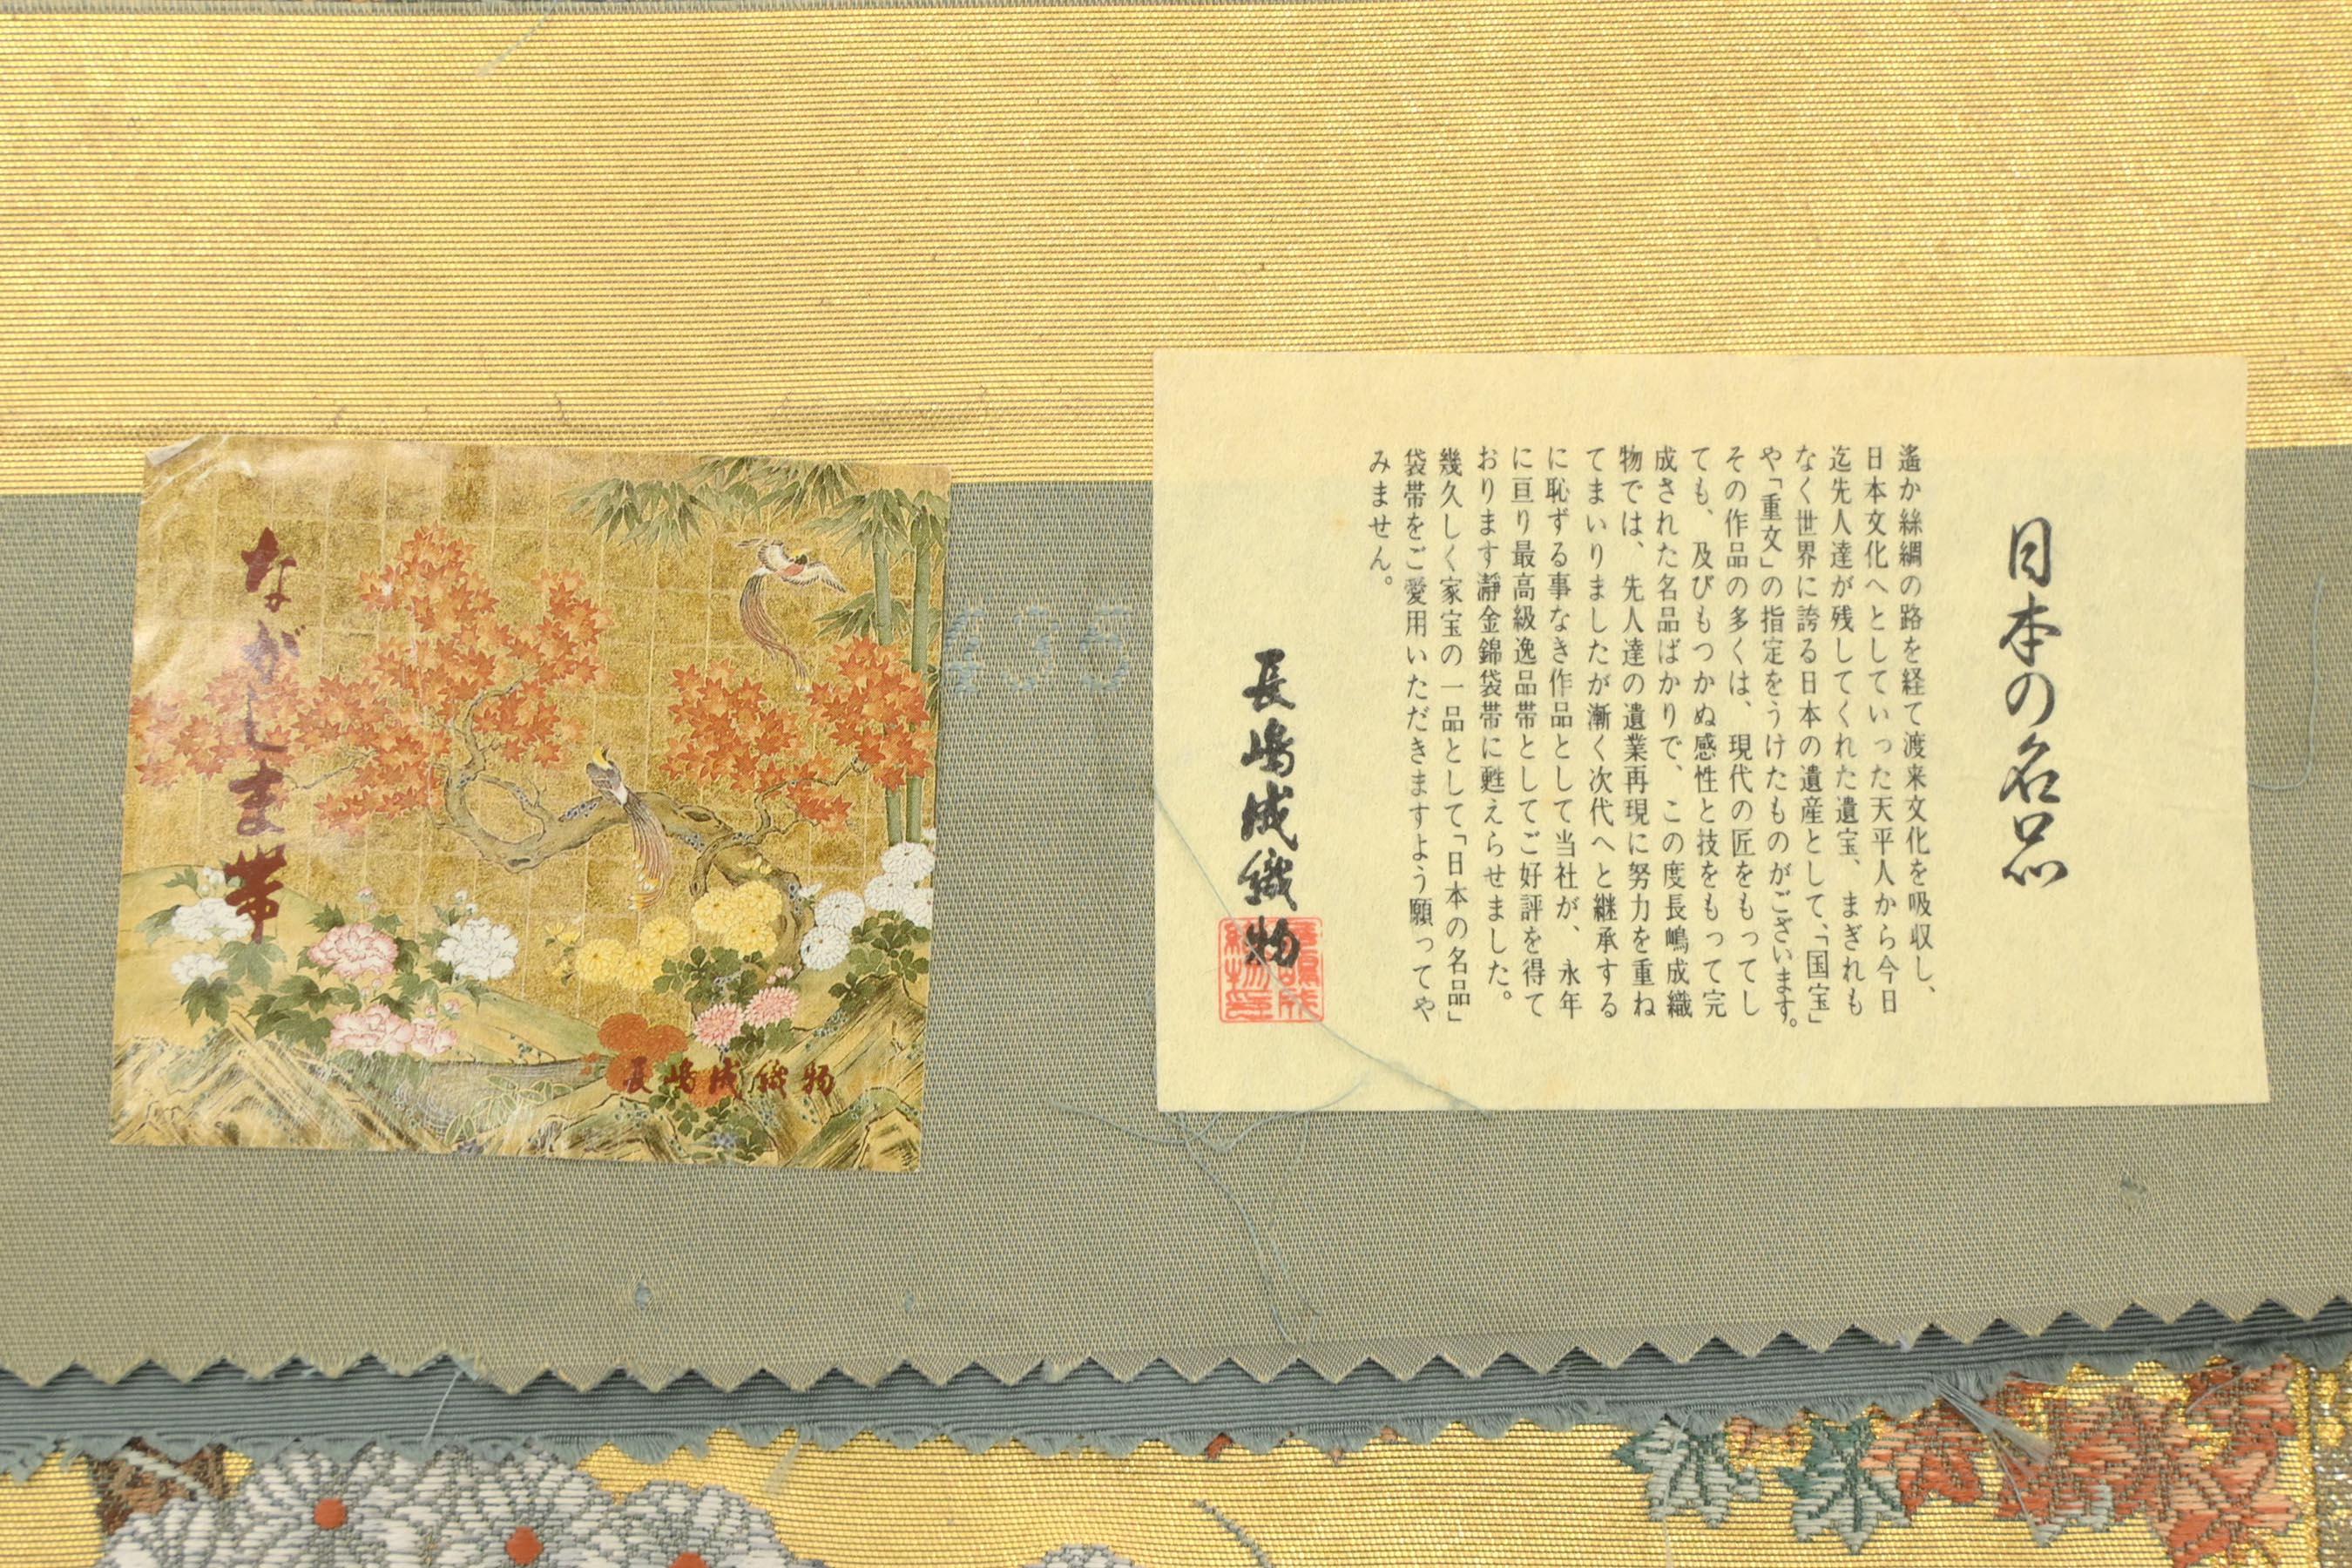 日本の名品
遙か絲綢の路を経て渡来文化を吸収し、
日本文化へとしていった天平人から今日
迄先人達が残してくれた遺宝、まぎれも
なく世界に誇る日本の遺産として、「国宝」
や「重文」の指定をうけたものがございます。
その作品の多くは、現代の匠をもってし
ても、及びもつかぬ感性と技をもって完
成された名品ばかりで、この度長嶋成織
物では、先人達の遺業再現に努力を重ね
てまいりましたが漸く次代へと継承する
に恥ずる事なき作品として当社が、永年
に亘り最高級逸品帯としてご好評を得て
おります瀞金錦袋帯に甦えらせました。
幾久しく家宝の一品として「日本の名品」
袋帯をご愛用いただきますよう願ってや
みません。
長嶋成織物
ながしま帯
長嶋成織物